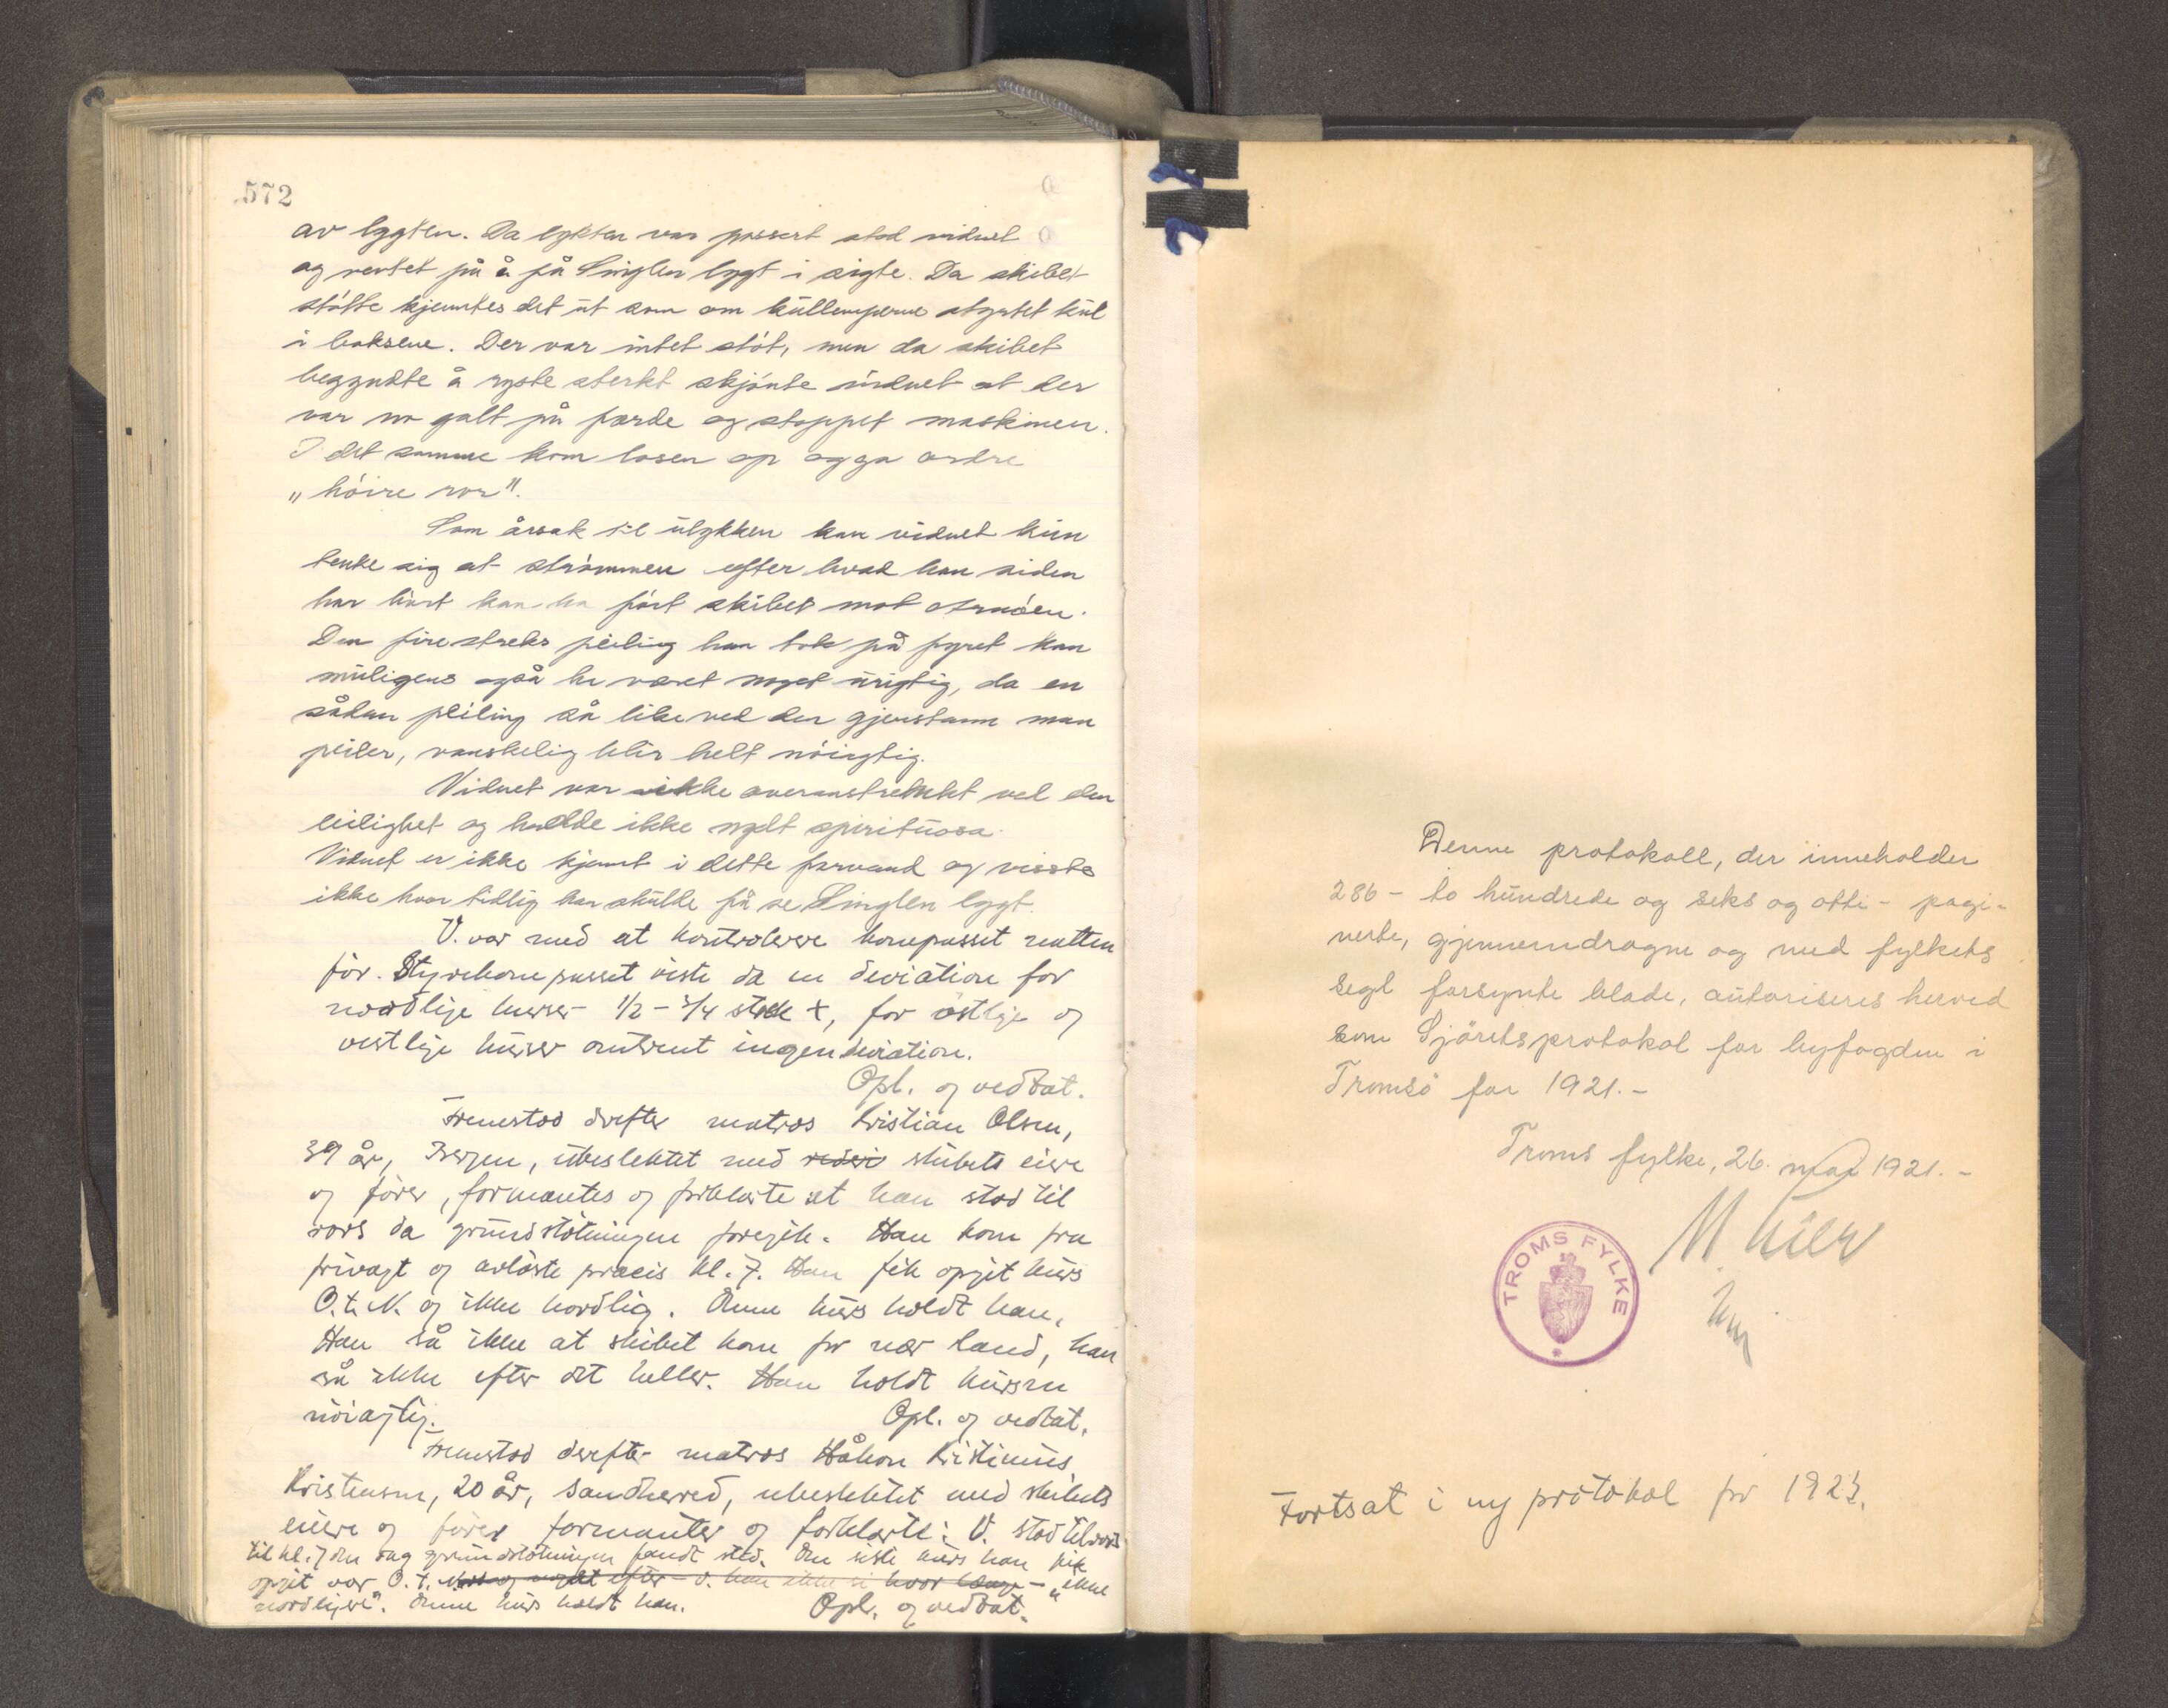 572
av lygten. Da lykten var passert stod vidnet
og ventet på å få Singlen lygt i sigte. Da skibet
støtte kjentes det ut som om kullemperne styrtet kul
i boksene. Der var intet støt, men da skibet
begyndte å ryste sterkt skjønte vidnet at der
var no galt på færde og stoppet maskinen.
I det samme kom losen op og ga ordre
"høire ror".
Som årsak til ulykken kan vidnet kun
tenke sig at strømmen efter hvad han siden
har hørt kan ha ført skibet mot Arnøen.
Den fire streks peiling han tok på fyret kan
muligens også ha været noget urigtig, da en
sådan peiling så like ved den gjenstann man
peiler, vanskelig blir helt nøiagtig.
Vidnet var ikke overanstrenkt ved den
leilighet og hadde ikke nydt spirituosa.
Vidnet er ikke kjent i dette farvand og visste
ikke hvor tidlig han skulde få se Singlen lygt.
V. var med at kontrolere kompasset natten
før. Styrekompasset viste da en deviation for
nordlige kurser 1/2 - 3/4 strek +, for østlige og
vestlige kurser omtrent ingen deviation.
Opl. og vedtat.
Fremstod derefter matros Kristian Olsen,
39 år, Bergen, ubeslektet med rederi skibets eiere
og fører, formantes og forklarte at han stod til
rors da grundstøtningen foregik. Han kom fra
frivagt og avløste præcis kl. 7. Han fik opgit kurs
O.t.N. og ikke nordlig. Denne kurs holdt han.
Han så ikke at skibet kom for nær land, han
så ikke efter det heller. Han holdt kursen
nøiagtig.
Opl. og vedtat.
Fremstod derefter matros Håkon Kristinius
Kristensen, 20 år, Sandherred, ubeslektet med skibets
eiere og fører formantes og forklarte: V. stod tilrors
til kl. 7 den dag grundstøtningen fandt sted. Den siste kurs han fik
opgit var O. t. N. og noget efter - v. kan ikke si hvor længe - "ikke
nordligere". Denne kurs holdt han.
Opl. og vedtat.
Denne protokoll, der inneholder
286 - to hundrede og seks og otti - pagi-
nerte, gjennemdragne og med fylkets
segl forsynte blade, autoriseres herved
som Sjöretsprotokol for byfogden i
Tromsö for 1921.-
Troms fylke, 26. mai 1921.-
TROMS FYLKE
Fortsat i ny protokol for 1923.